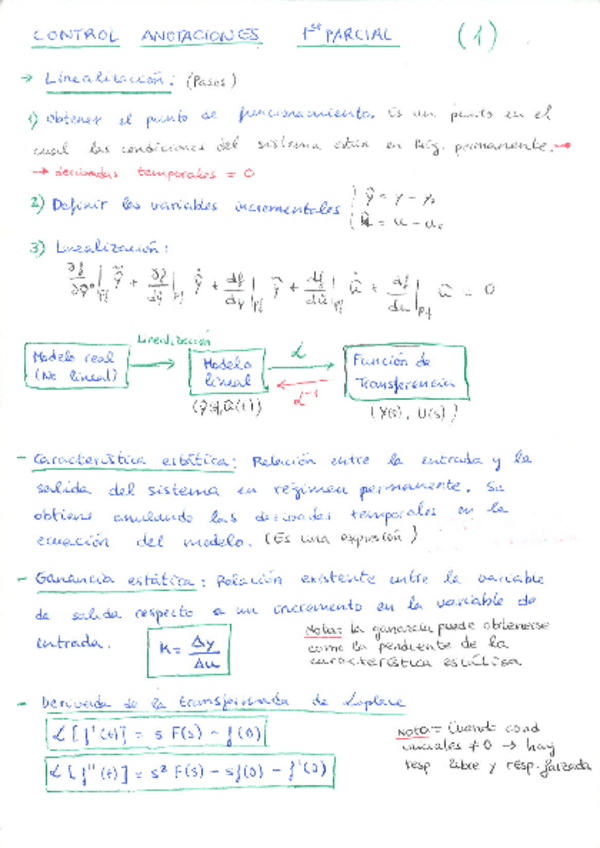 CONTROL ANOTACIONES 1er PARCIAL (1)
→ Linealización: (Pasos)
1) Obtener el punto de funcionamiento. Es un punto en el
cual las condiciones del sistema están en Rég. permanente. →
→ derivadas temporales = 0
2) Definir las variables incrementales { ŷ = y - y₀
û = u - u₀
3) Linealización:
Modelo real
(No lineal)
Linealización
Modelo
lineal
(ŷ(t), û(t))
ℒ
ℒ⁻¹
Función de
Transferencia
(Y(s), U(s))
- Característica estática: Relación entre la entrada y la
salida del sistema en régimen permanente. Se
obtiene anulando las derivadas temporales en la
ecuación del modelo. (Es una expresión)
- Ganancia estática: Relación existente entre la variable
de salida respecto a un incremento en la variable de
entrada.
K = Δy/Δu
Nota: la ganancia puede obtenerse
como la pendiente de la
característica estática
- Derivada de la transformada de Laplace
ℒ[f'(t)] = s F(s) - f(0)
ℒ[f''(t)] = s² F(s) - sf(0) - f'(0)
Nota: Cuando cond
iniciales ≠ 0 → hay
resp libre y resp. forzada